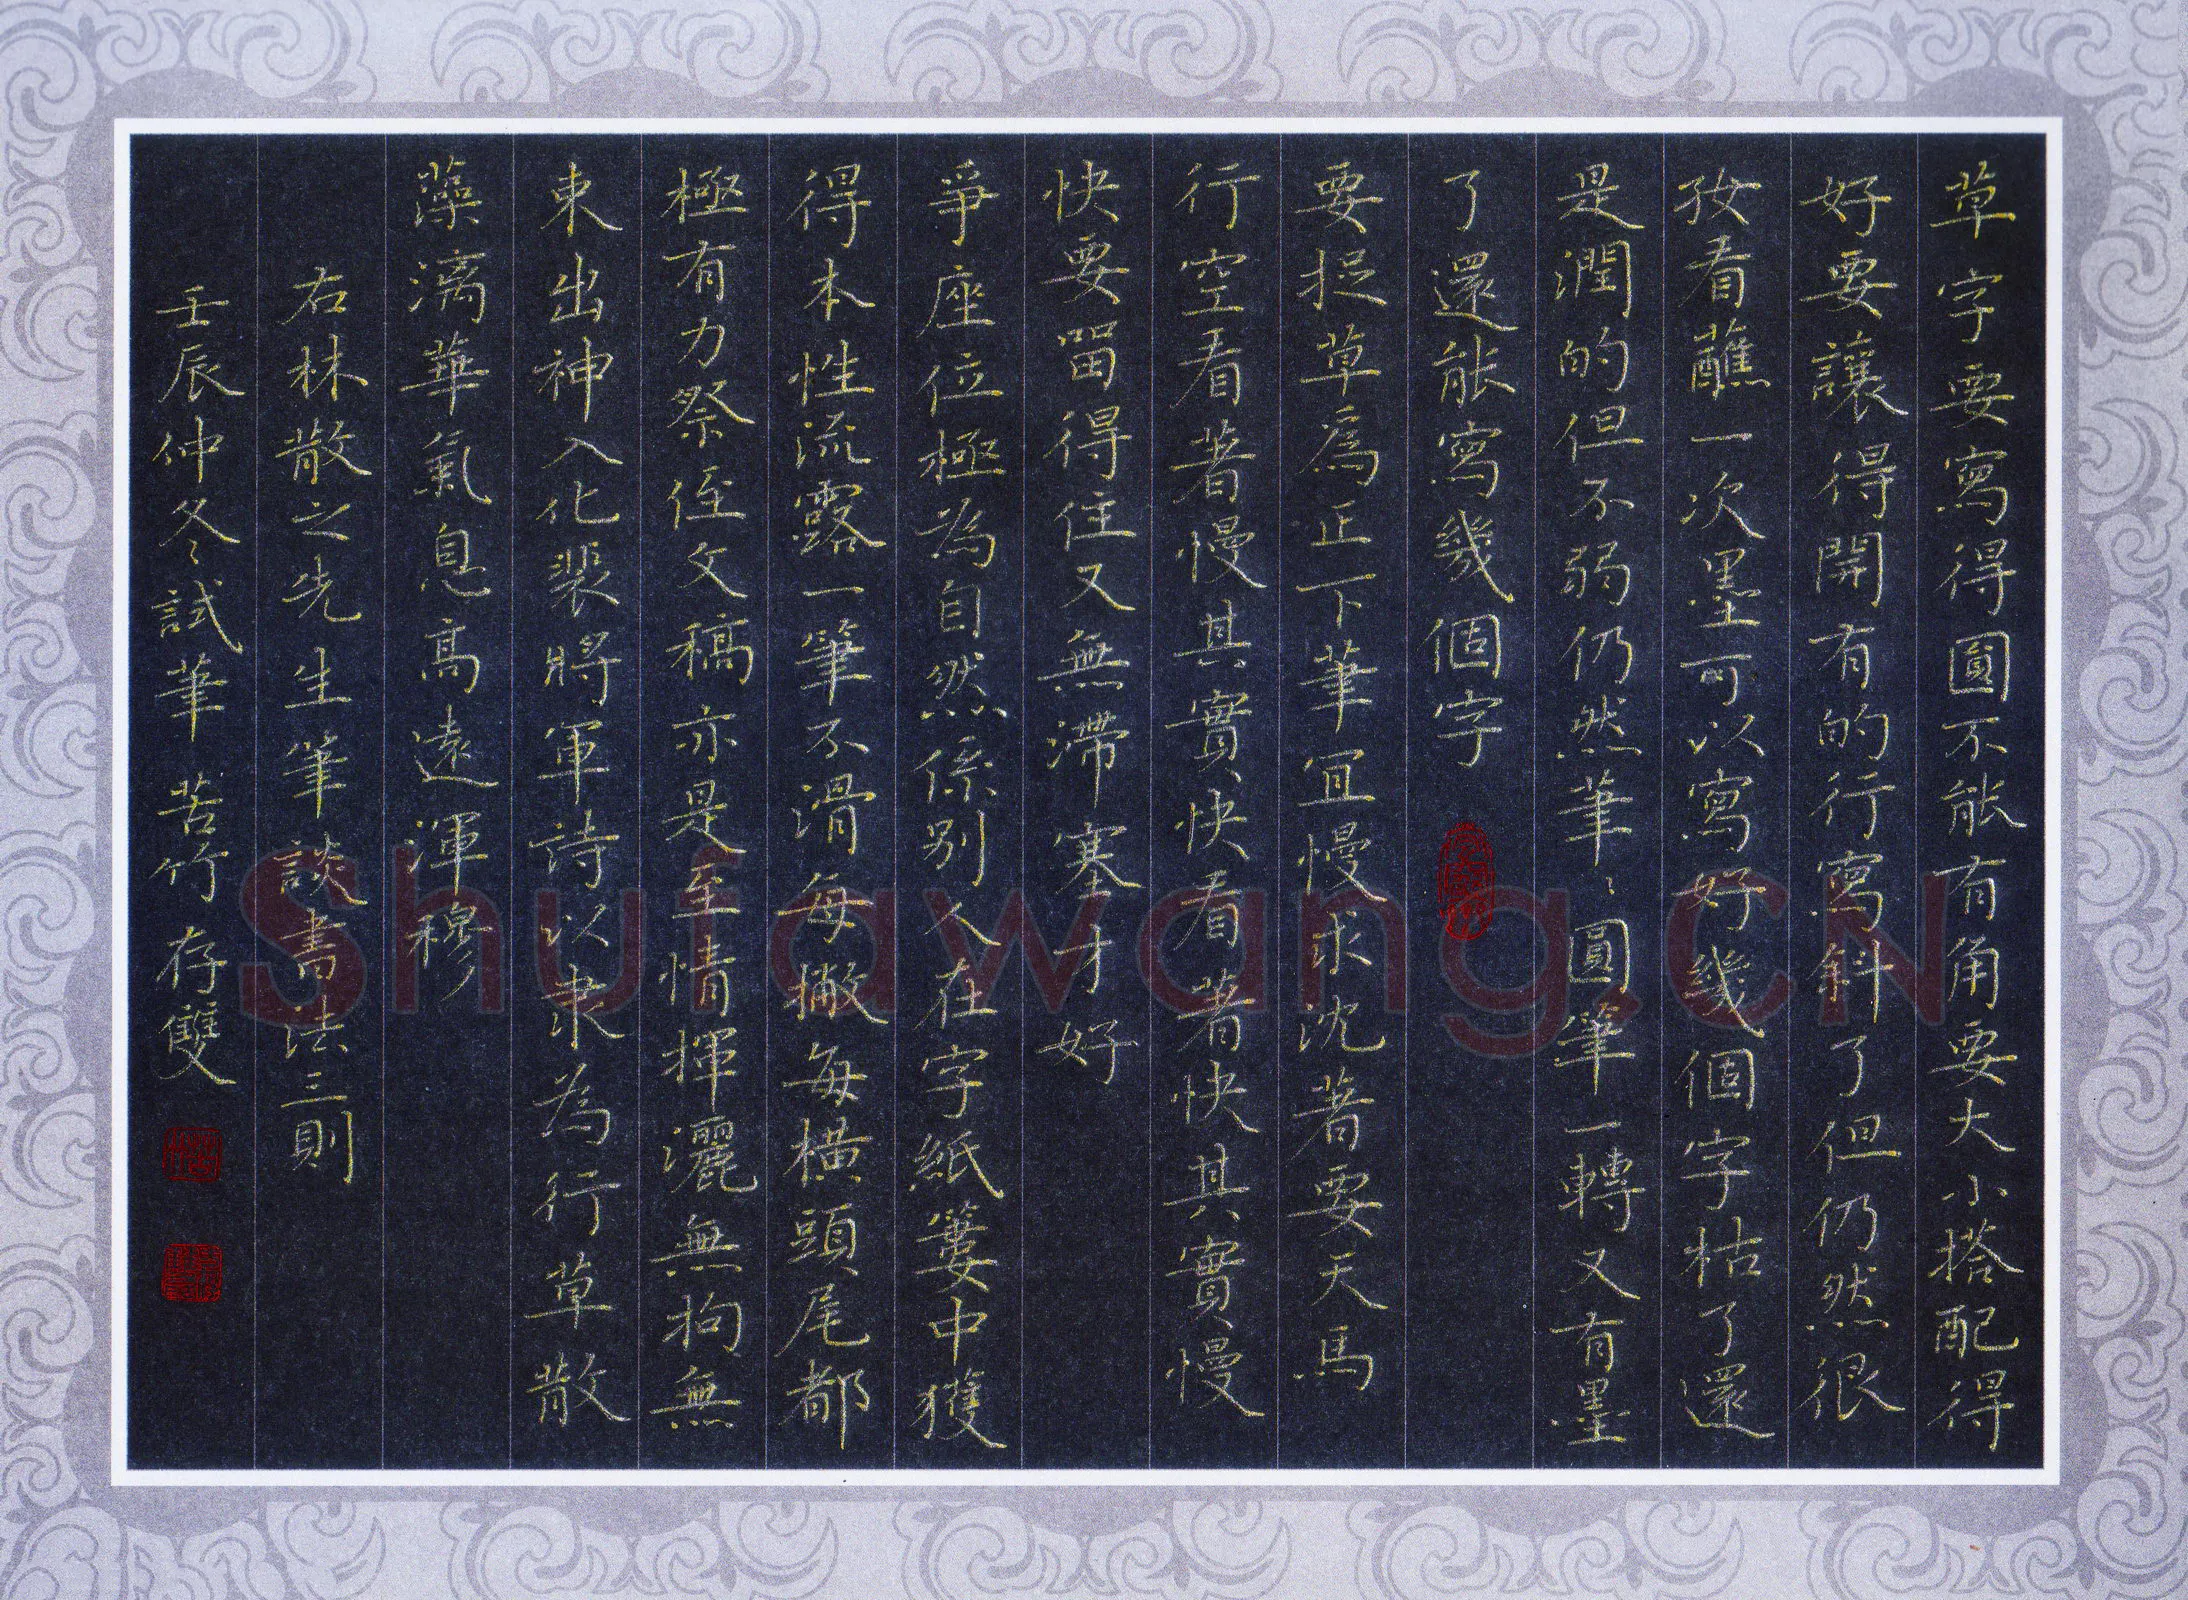 草字要寫得圓不能有角要大小搭配得
好要讓得開有的行寫斜了但仍然很
好看蘸一次墨可以寫好幾個字枯了還
是潤的但不弱仍然筆筆圓筆一轉又有墨
了還能寫幾個字
要捉草爲正下筆宜慢求沈著要天馬
行空看著慢其實快看著快其實慢
快要留得住又無滯塞才好
爭座位極為自然係别人在字紙簍中獲
得本性流露一筆不滑每撇每橫頭尾都
極有力祭侄文稿亦是至情揮灑無拘無
束出神入化裴將軍詩以隶為行草散
藻漓華氣息高遠渾穆
右林散之先生筆談書法三則
壬辰仲冬試筆 苦竹存雙
Shufawang.CN